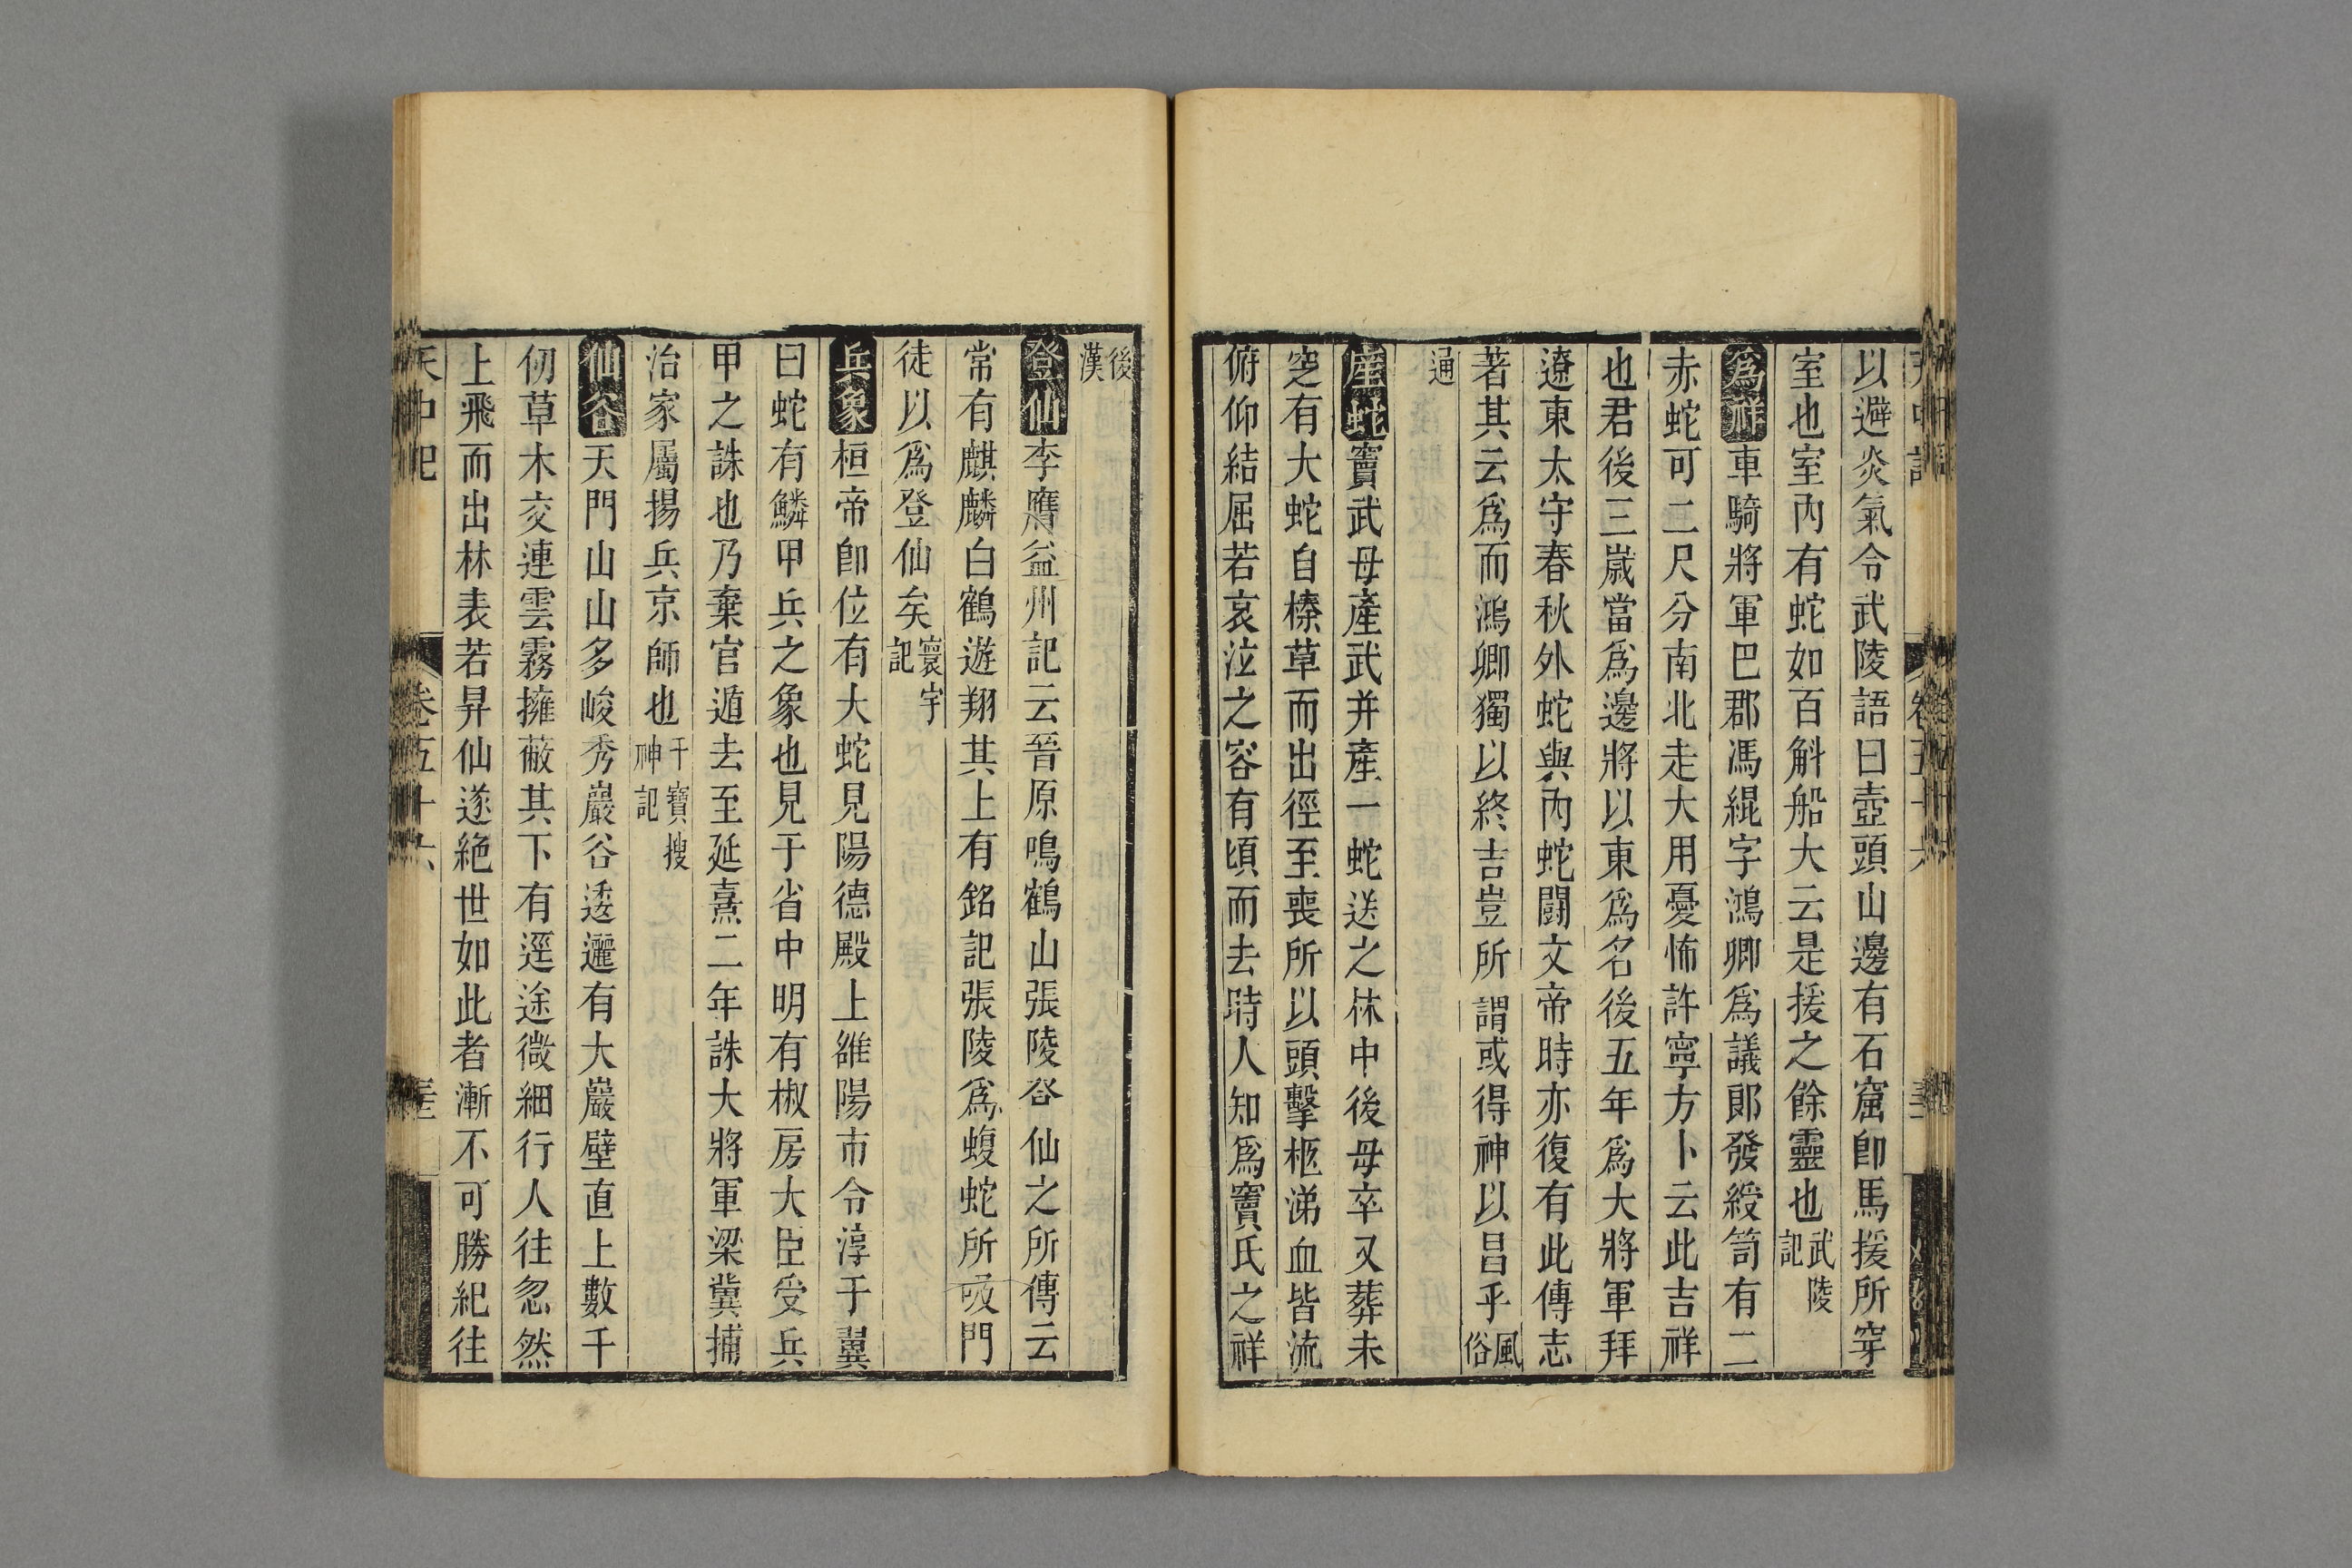 以避炎氣令武陵語曰壺頭山邊有石窟卽馬援所穿
室也室內有蛇如百斛船大云是援之餘靈也武陵記
爲祥車騎將軍巴郡馮緄字鴻卿爲議郞發綬笥有二
赤蛇可二尺分南北走大用憂怖許寧方卜云此吉祥
也君後三歲當爲邊將以東爲名後五年爲大將軍拜
遼東太守春秋外蛇與內蛇鬪文帝時亦復有此傳志
著其云爲而鴻卿獨以終吉豈所謂或得神以昌乎風俗
通
產蛇竇武母產武并產一蛇送之林中後母卒又葬未
窆有大蛇自榛草而出徑至喪所以頭擊柩涕血皆流
俯仰結屈若哀泣之容有頃而去時人知爲竇氏之祥
後漢
登仙李膺益州記云晉原鳴鶴山張陵答仙之所傳云
常有麒麟白鶴遊翔其上有銘記張陵爲蝮蛇所吸門
徒以爲登仙矣寰宇記
兵象桓帝卽位有大蛇見陽德殿上雒陽市令淳于翼
曰蛇有鱗甲兵之象也見于省中明有椒房大臣受兵
甲之誅也乃棄官遁去至延熹二年誅大將軍梁冀捕
治家屬揚兵京師也干寶搜神記
仙谷天門山山多峻秀巖谷逶邐有大巖壁直上數千
仞草木交連雲霧擁蔽其下有逕途微細行人往忽然
上飛而出林表若昇仙遂絶世如此者漸不可勝紀往
天中記
卷五十六